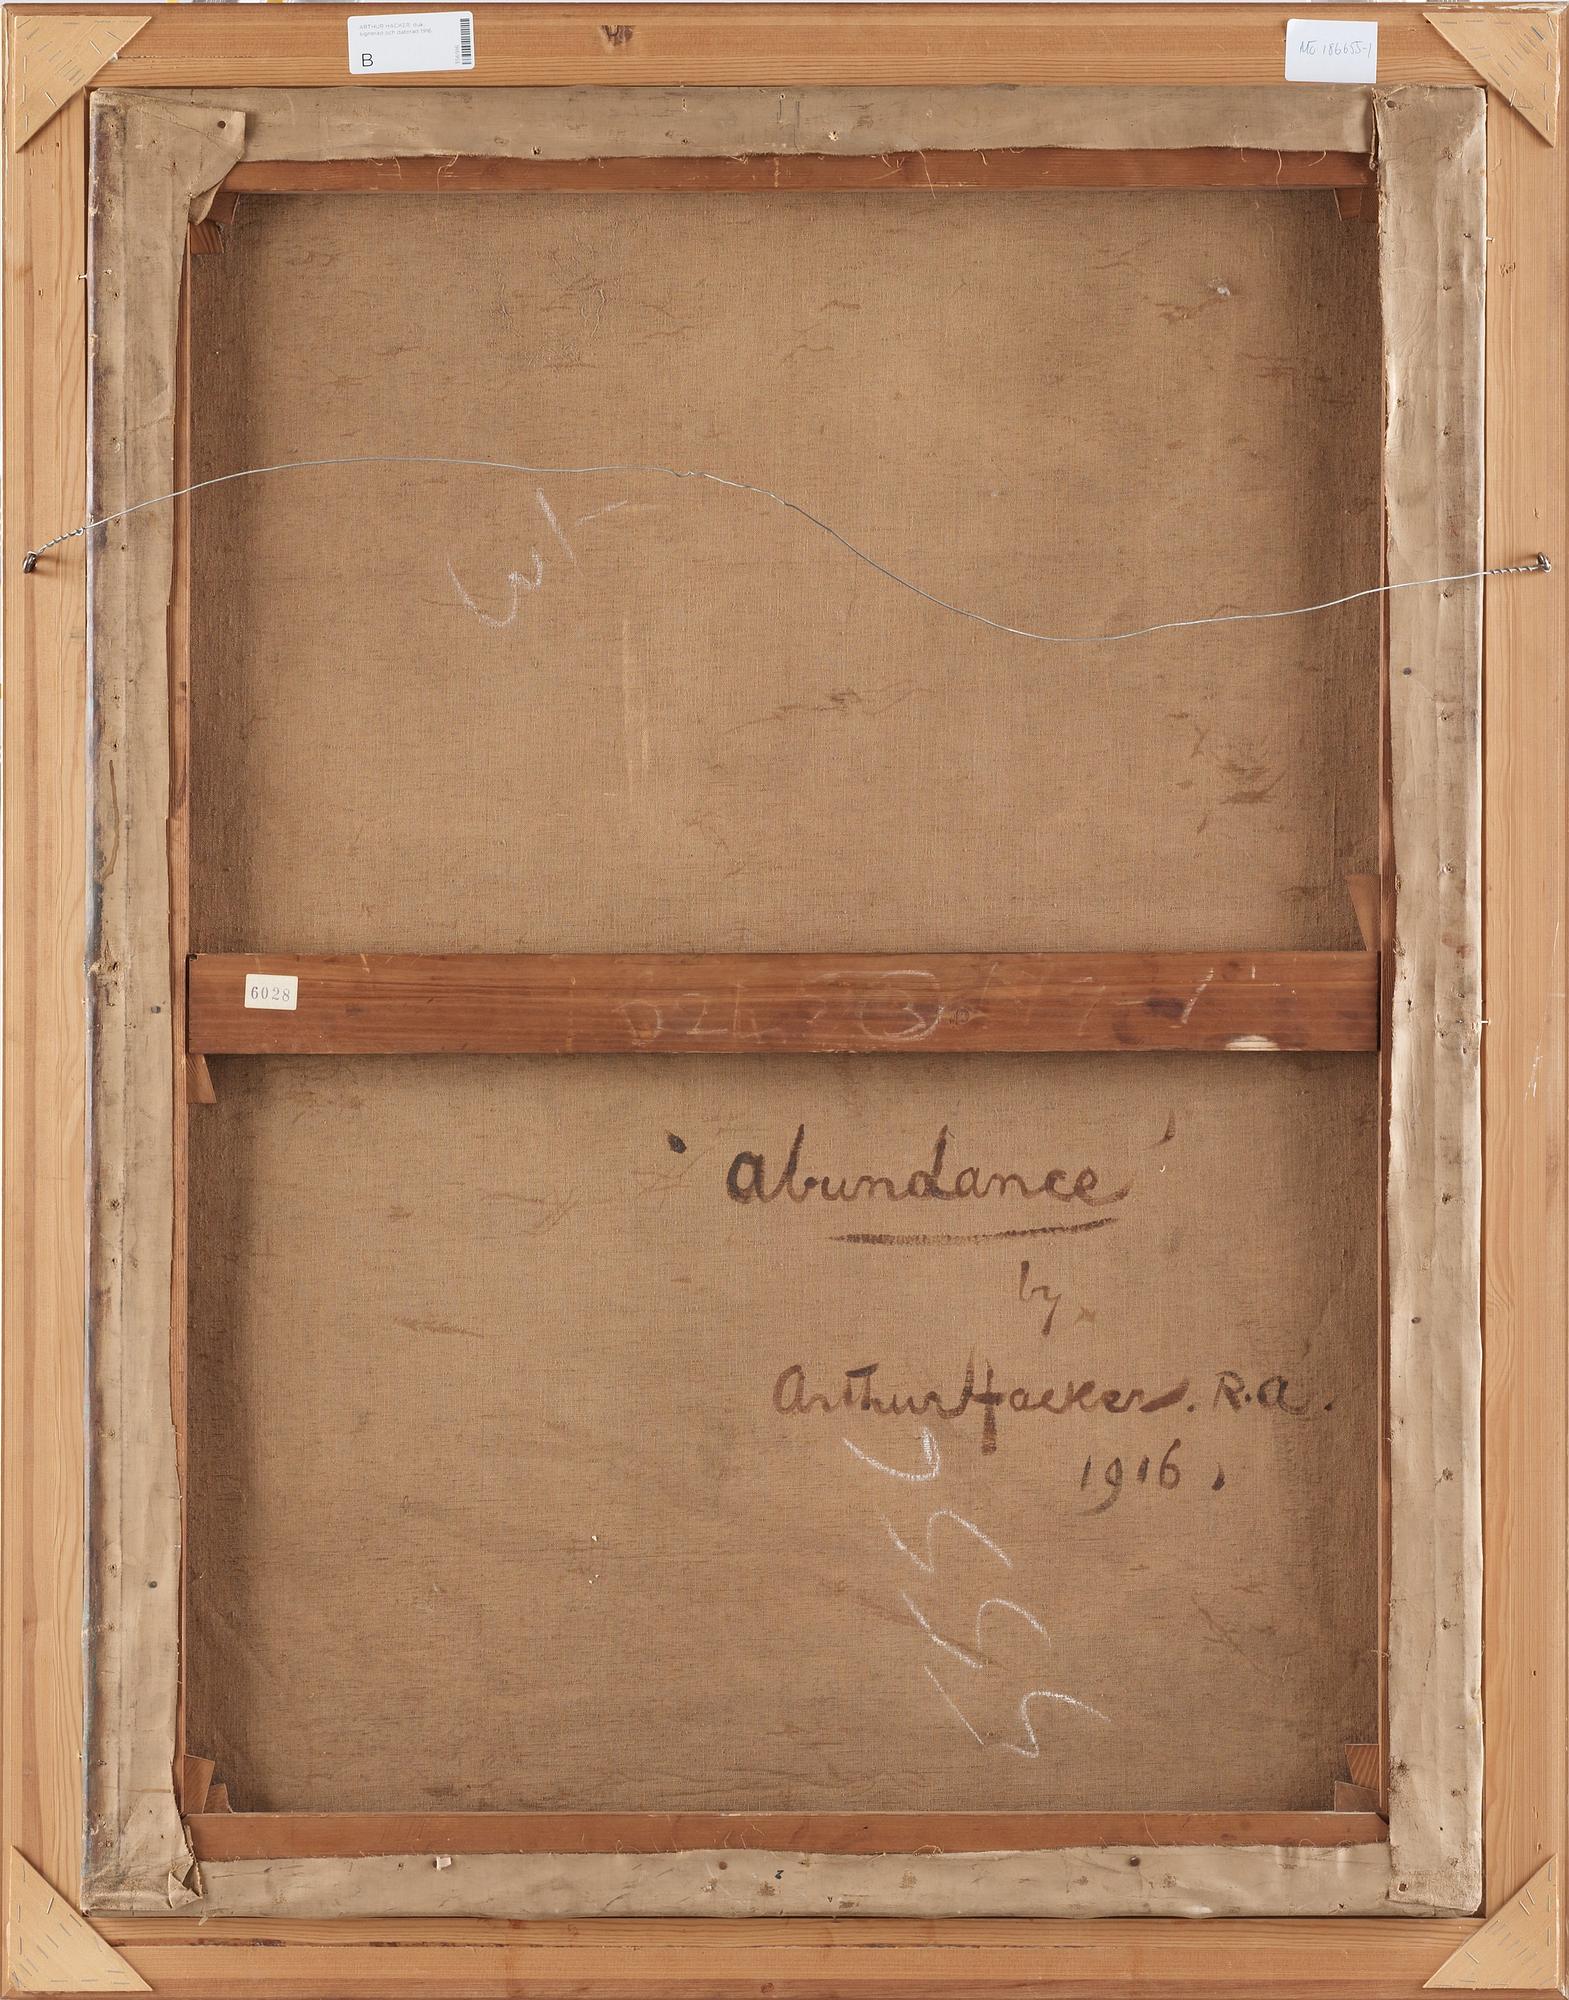 ARTHUR HACKER. duk,
signerad och daterad 1916.
B
MO 186655-1
6028
'Abundance'
by
Arthur Hacker. R.A.
1916.